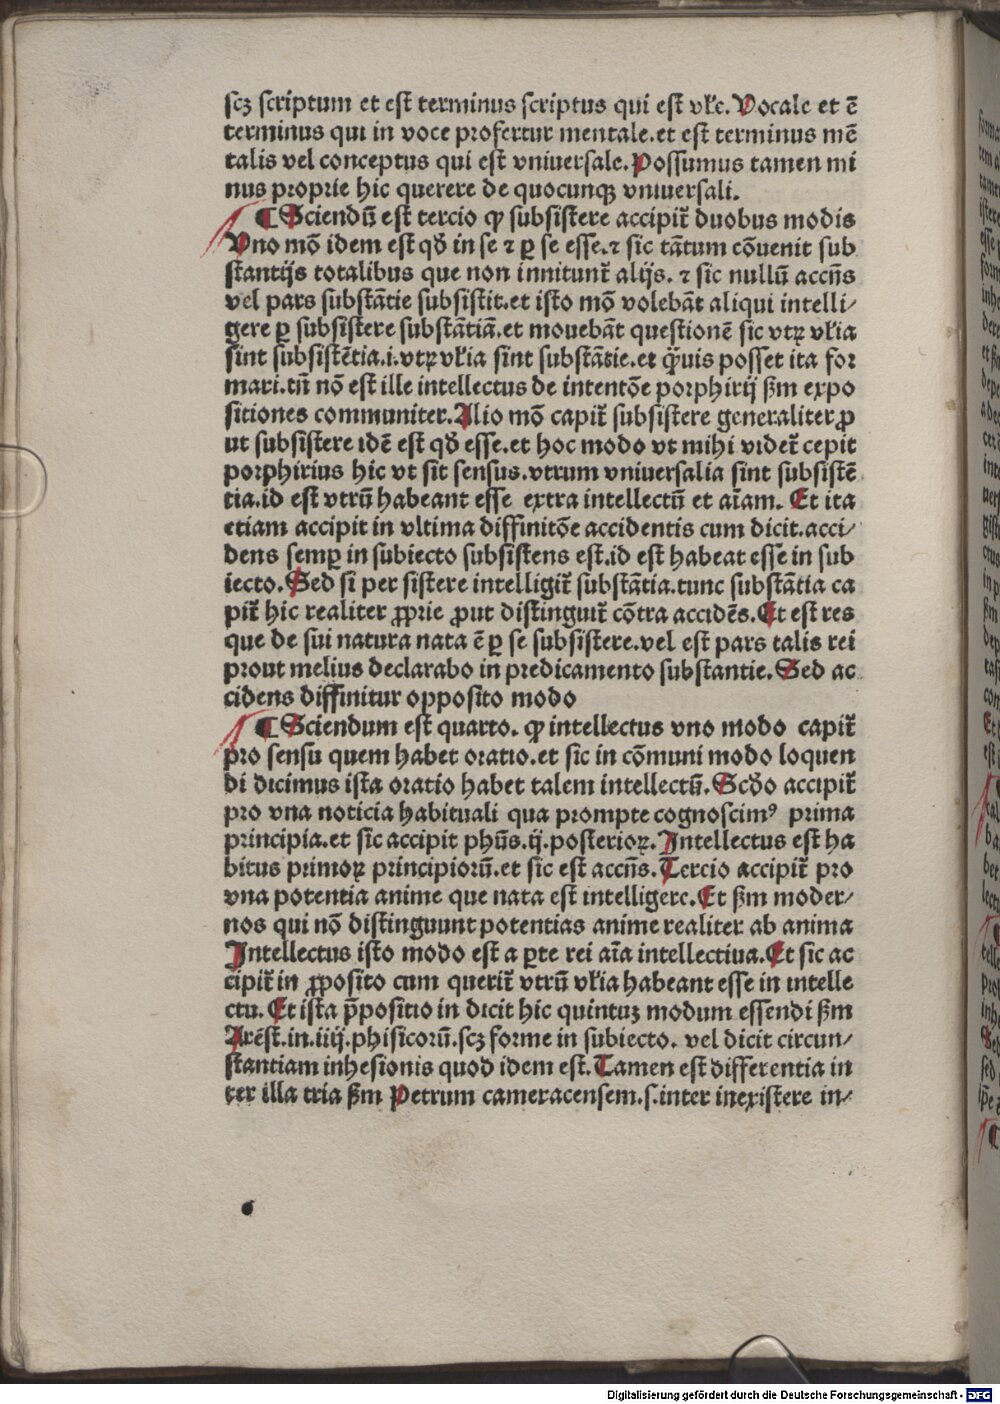 scꝫ scriptum et est terminus scriptus qui est vl̕e. Vocale et ē
terminus qui in voce profertur mentale.et est terminus mē
talis vel conceptus qui est vniuersale. Possumus tamen mi
nus proprie hic querere de quocunqꝫ vniuersali.
¶ Sciendū est tercio ꝙ subsistere accipit̃ duobus modis
Vno mō idem est qđ in se ⁊ ꝑ se esse.⁊ sic tātum cōuenit sub
stantijs totalibus que non innitunt̃ alijs. ⁊ sic nullū accn̄s
vel pars substātie subsistit.et isto mō volebāt aliqui intelli⸗
gere ꝑ subsistere substātiā.et mouebāt questionē sic vtꝝ vl̕ia
sint subsistētia.i.vtꝝ vl̕ia sint substātie.et qͣuis posset ita for
mari.tn̄ nō est ille intellectus de intentōe porphirij ẞm expo
sitiones communiter. Alio mō capit̃ subsistere generaliter ꝓ
ut subsistere idē est qđ esse.et hoc modo vt mihi videt̃ cepit
porphirius hic vt sit sensus.vtrum vniuersalia sint subsistē
tia.id est vtrū habeant esse extra intellectū et aīam. Et ita
etiam accipit in vltima diffinitōe accidentis cum dicit.acci⸗
dens semꝑ in subiecto subsistens est.id est habeat esse in sub
iecto. Sed si per sistere intelligit̃ substātia.tunc substātia ca
pit̃ hic realiter ꝓprie ꝓut distinguit̃ cōtra accidēs. Et est res
que de sui natura nata ē ꝑ se subsistere.vel est pars talis rei
prout melius declarabo in predicamento substantie. Sed ac
cidens diffinitur opposito modo
¶ Sciendum est quarto. ꝙ intellectus vno modo capit̃
pro sensu quem habet oratio.et sic in cōmuni modo loquen
di dicimus ista oratio habet talem intellectū. Scđo accipit̃
pro vna noticia habituali qua prompte cognoscimꝰ prima
principia.et sic accipit phūs.ij.posterioꝝ. Intellectus est ha
bitus primoꝝ principiorū.et sic est accn̄s. Tercio accipit̃ pro
vna potentia anime que nata est intelligere. Et ẞm moder⸗
nos qui nō distinguunt potentias anime realiter ab anima
Intellectus isto modo est a ꝑte rei aīa intellectiua. Et sic ac
cipit̃ in ꝓposito cum querit̃ vtrū vl̕ia habeant esse in intelle
ctu. Et ista p̄positio in dicit hic quintuꝫ modum essendi ẞm
Arēst.in.iiij.phisicorū.scꝫ forme in subiecto. vel dicit circun⸗
stantiam inhesionis quod idem est. Tamen est differentia in
ter illa tria ẞm Petrum cameracensem.s.inter inexistere in⸗
Digitalisierung gefördert durch die Deutsche Forschungsgemeinschaft - DFG